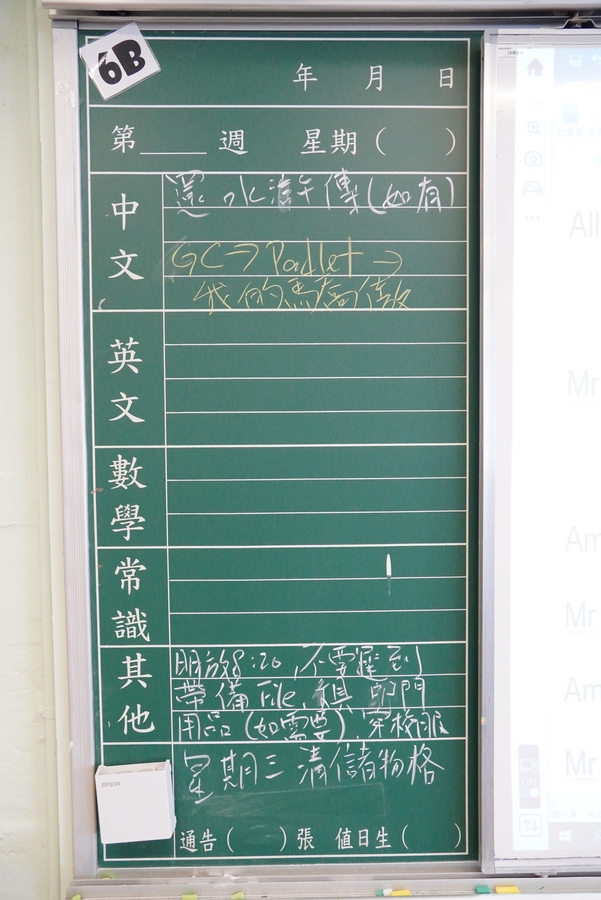 6B
年 月 日
第____週 星期( )
中文
還 水滸傳(如有)
GC→Padlet→
我的馬
英文
數學
常識
其他
開放8:20,不要遲到
帶備File,
用品(如需要),穿校服
星期三清 儲物格
EPSON
通告( )張 值日生( )
All
Mr
Am
Mr
Am
Mr